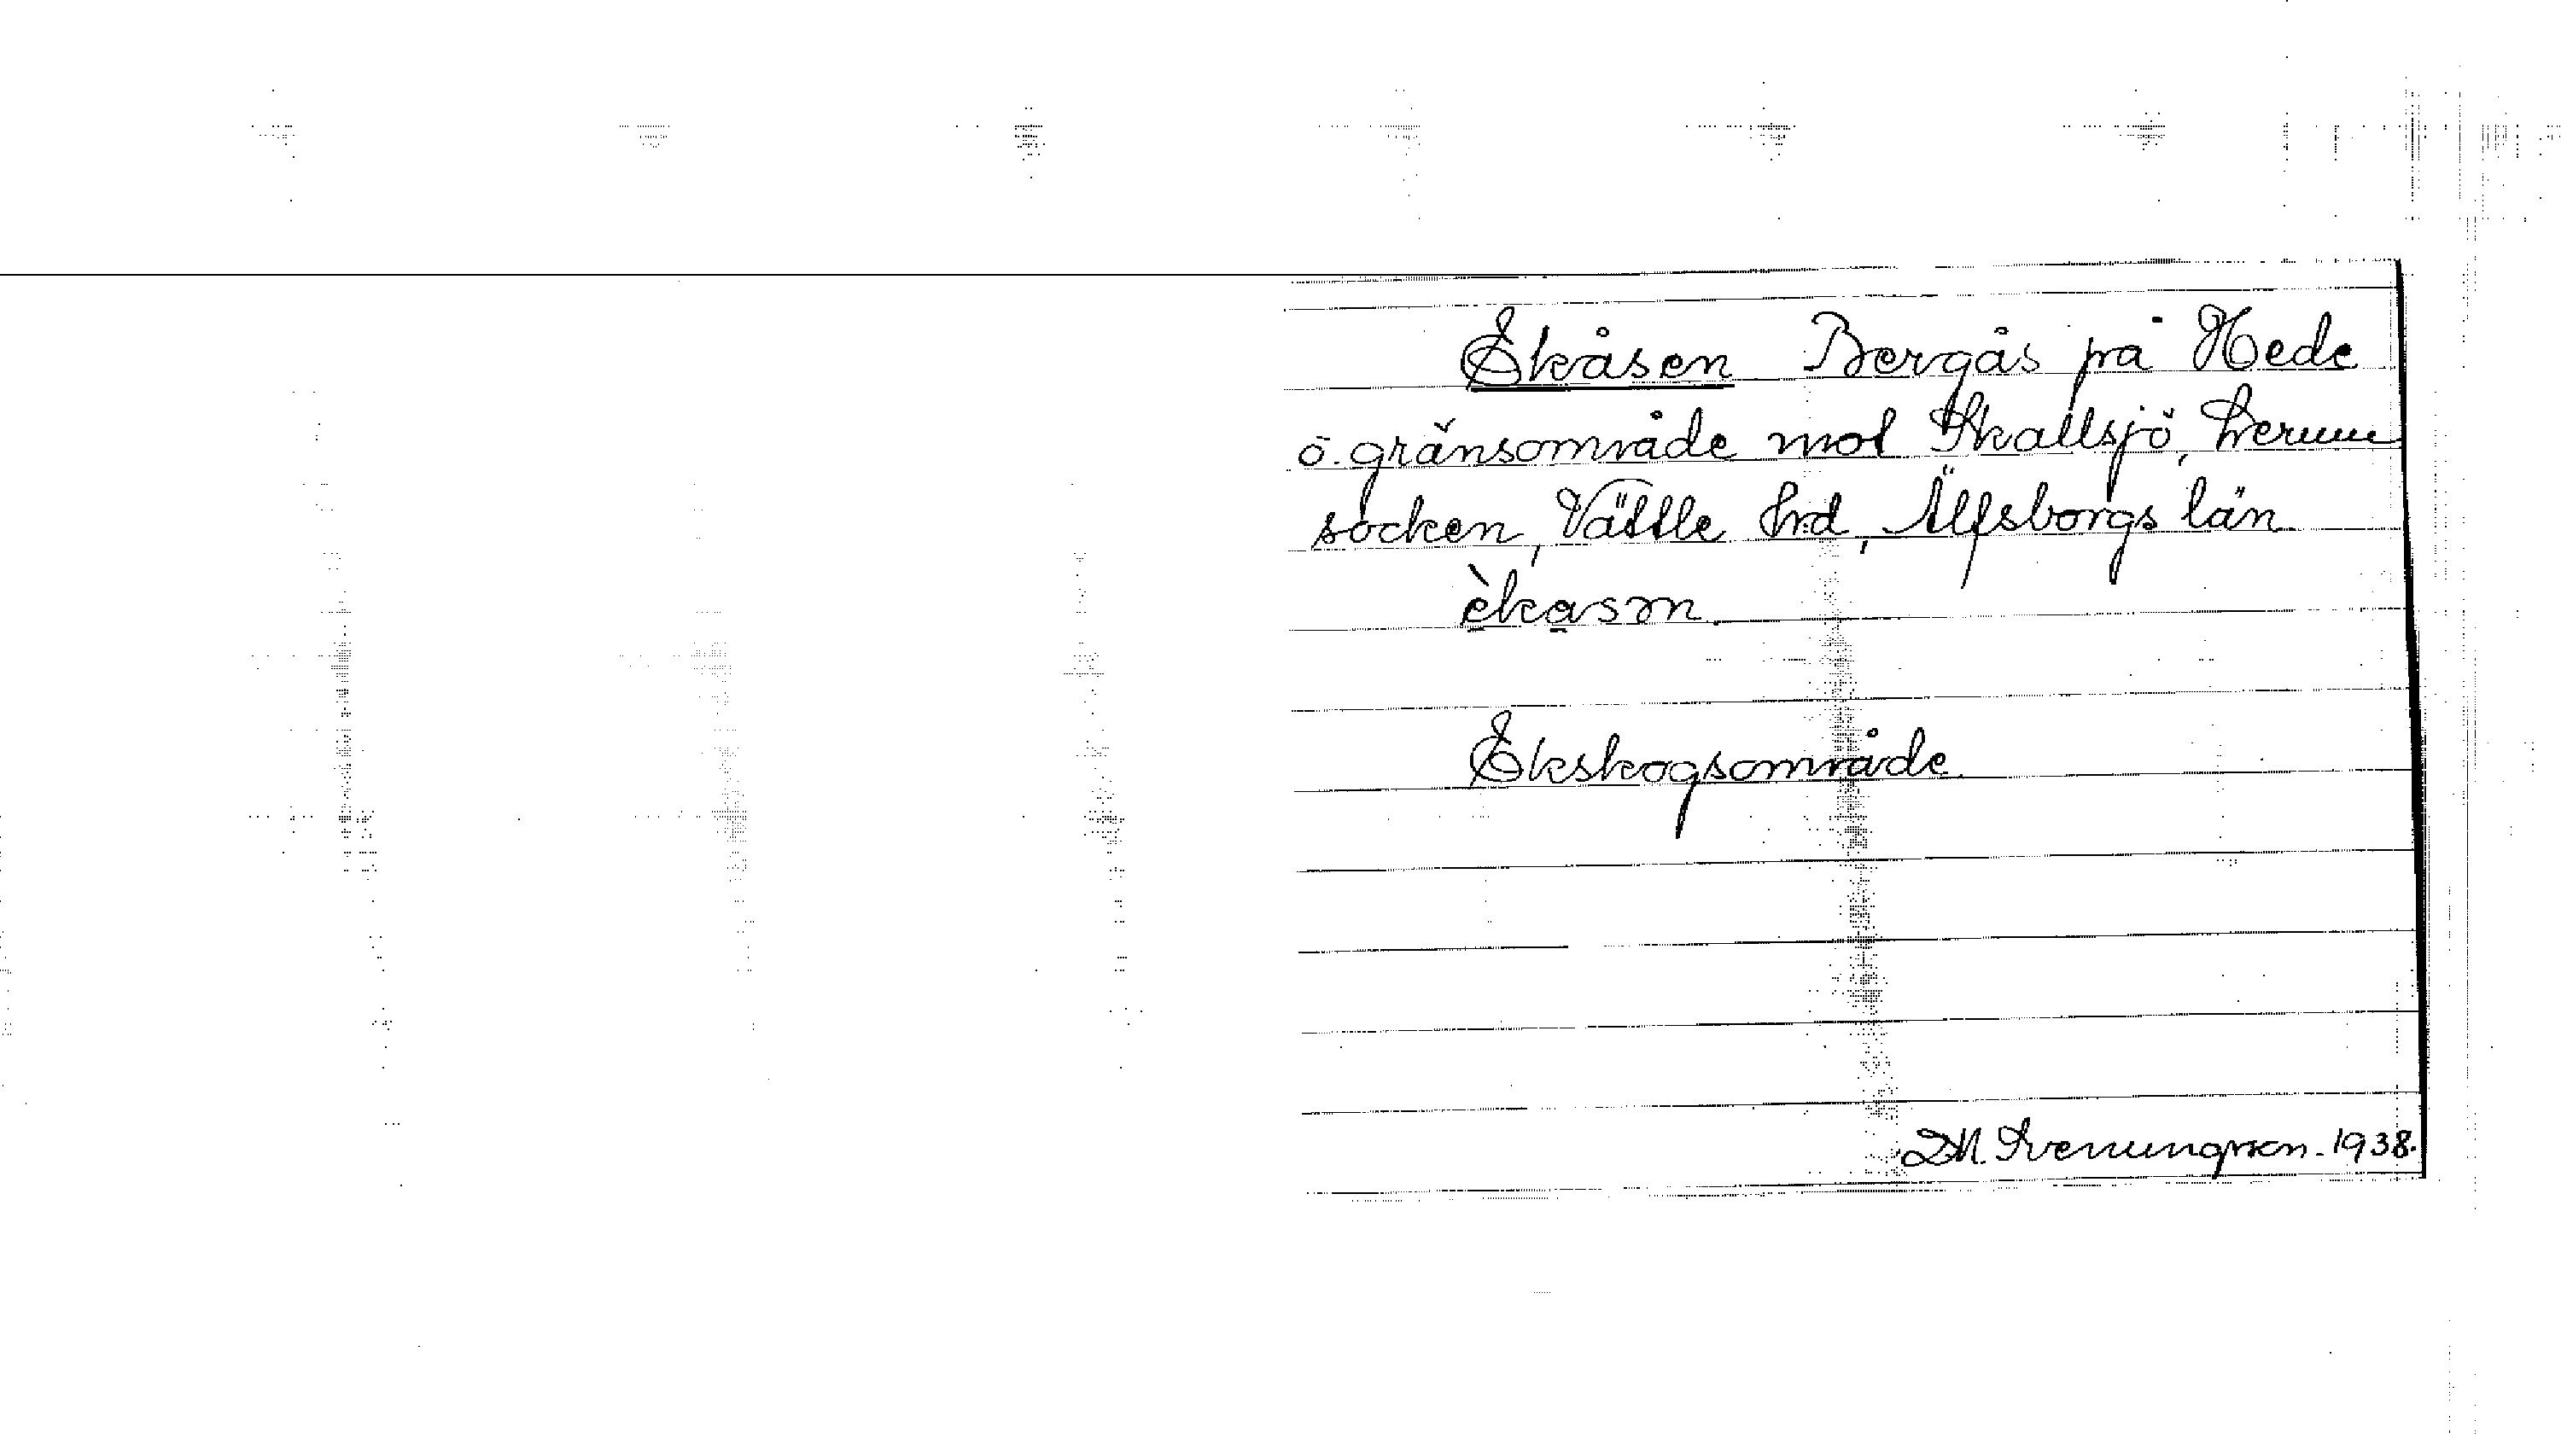 Ekåsen Bergås på Hede
ö. gränsområde mot Skallsjö, Lerum
socken, Vättle hrd, Älfsborgs län
èkasən
Ekskogsområde
D.M. Svenungsson. 1938.